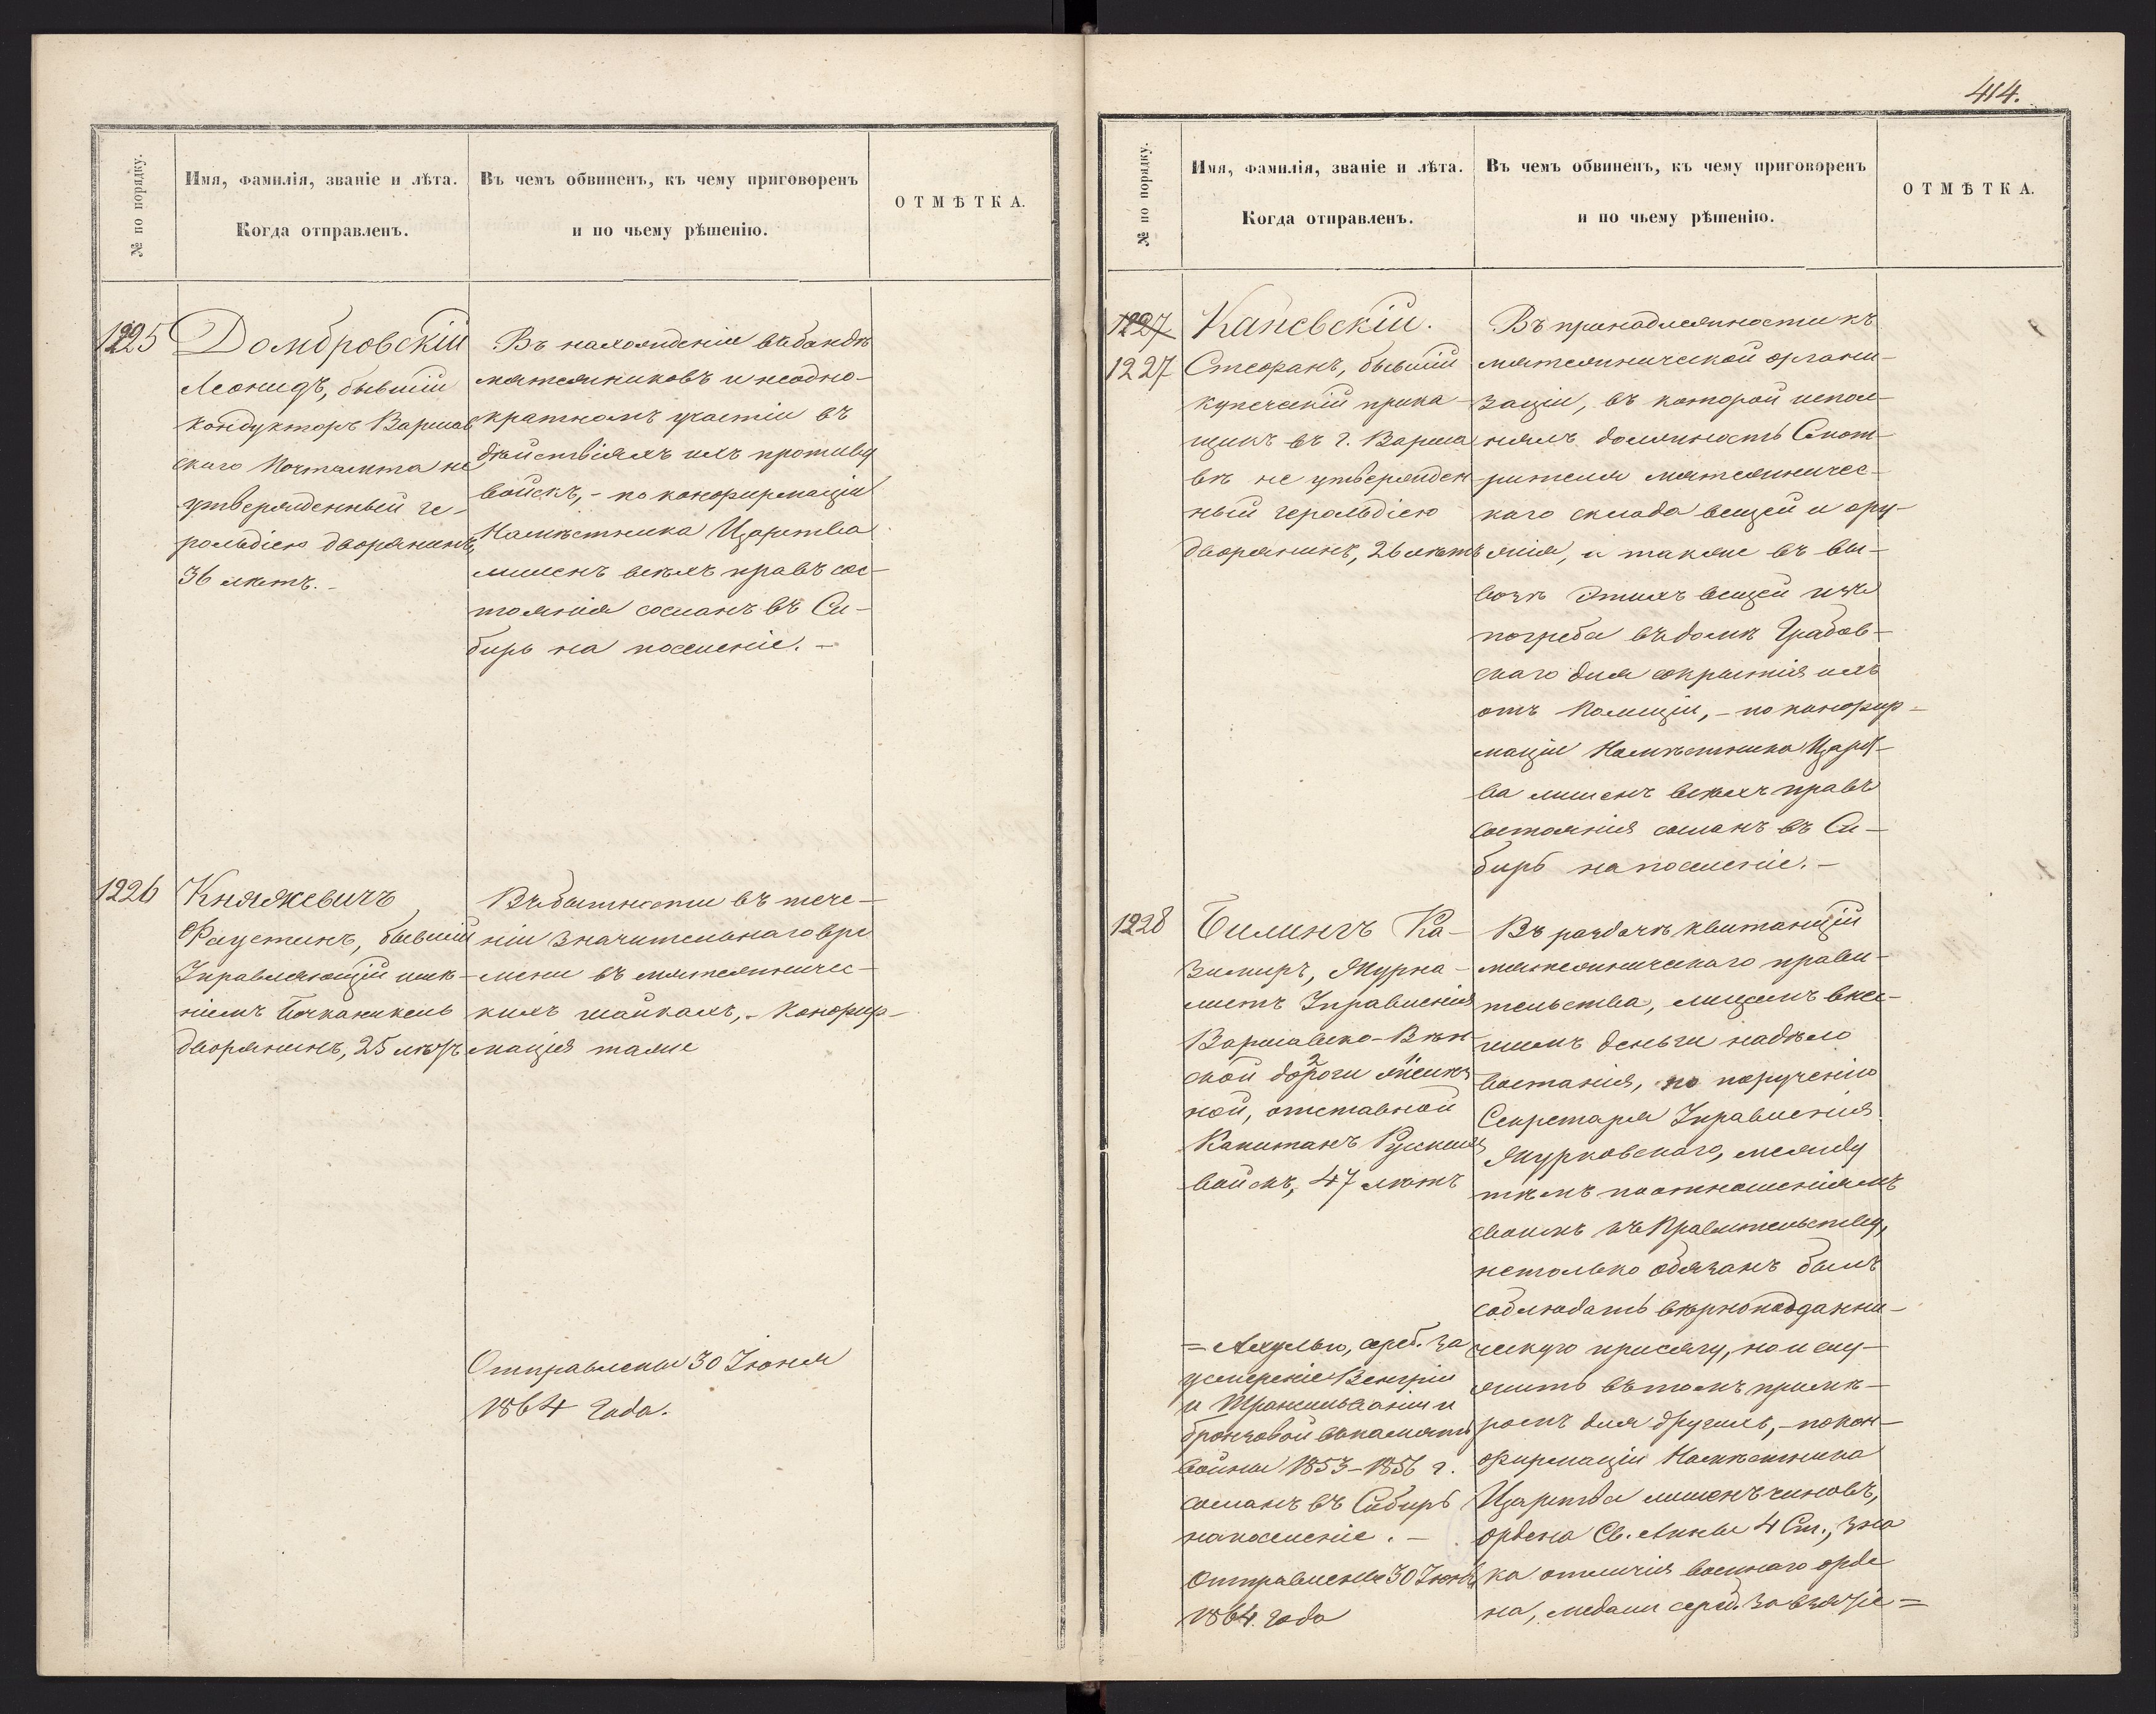 № по порядку.
Имя, фамилія, званіе и лѣта.
Когда отправленъ.
Въ чемъ обвиненъ, къ чему приговоренъ
и по чьему рѣшенію.
ОТМѢТКА.
1225
Домбровскій
Леонидъ, бывшій
кондукторъ Варшав
скаго Почтамта не
утвержденный ге-
рольдіею дворянинъ,
36 лѣтъ.-
Въ нахожденіи въ бандѣ
мятежниковъ и неодно-
кратномъ участіи въ
дѣйствіяхъ ихъ противу
войскъ, - по конфирмаціи
Намѣстника Царства
лишенъ всѣхъ правъ сос-
тоянія сосланъ въ Си-
бирь на поселеніе. -
1226
Княжевичъ
Фаустинъ, бывшій
Управляющій имѣ-
ніемъ
дворянинъ, 25 лѣтъ
Въ бытности въ тече-
ніи значительнаго вре
мени въ мятежничес-
кихъ шайкахъ, - Конфир-
мація таже
Отправлены 30 Іюня
1864 года.
414.
№ по порядку.
Имя, фамилія, званіе и лѣта.
Когда отправленъ.
Въ чемъ обвиненъ, къ чему приговоренъ
и по чьему рѣшенію.
ОТМѢТКА.
1227
1227
Каневскій.
Стефанъ, бывшій
купеческій прика-
щикъ въ г. Варша
вѣ не утвержден-
ный герольдіею
дворянинъ, 26 лѣтъ
Въ принадлежности къ
мятежнической органи-
заціи, въ которой испол-
нялъ должность Смот-
рителя мятежничес-
каго склада вещей и ору-
жія, а также въ вы-
возѣ этихъ вещей изъ
погреба въ домѣ Грабов-
скаго для сокрытія ихъ
отъ Полиціи, - по конфир-
маціи Намѣстника Царст-
ва лишенъ всѣхъ правъ
состоянія сосланъ въ Си-
бирь на поселеніе. -
1228
Билингъ Ка-
зимиръ, Журна-
листъ Управленія
Варшавско-Вѣн-
ской дороги желѣз
ной, отставной
Капитанъ Русскихъ
войскъ, 47 лѣтъ
Въ раздачѣ квитанцій
мятежническаго прави-
тельства, лицамъ внес-
шимъ деньги на дѣло
возстанія, по порученію
Секретаря Управленія
Журковскаго, между
тѣмъ по отношеніямъ
своимъ къ Правительству,
не только обязанъ былъ
соблюдать вѣрноподданни-
ческую присягу, но и слу-
жить въ томъ примѣ-
ромъ для другихъ, - по кон-
фирмаціи Намѣстника
Царства лишенъ чиновъ,
ордена Св. Анны 4 Ст., зна
ка отличія военнаго орде
на, медали сереб. за взятіе =
= Ахульго, сереб. за
усмиреніе Венгріи
и Трансильваніи и
бронзовой въ память
войны 1853-1856 г.
сосланъ въ Сибирь
на поселеніе. -
Отправлены 30 Іюня
1864 года